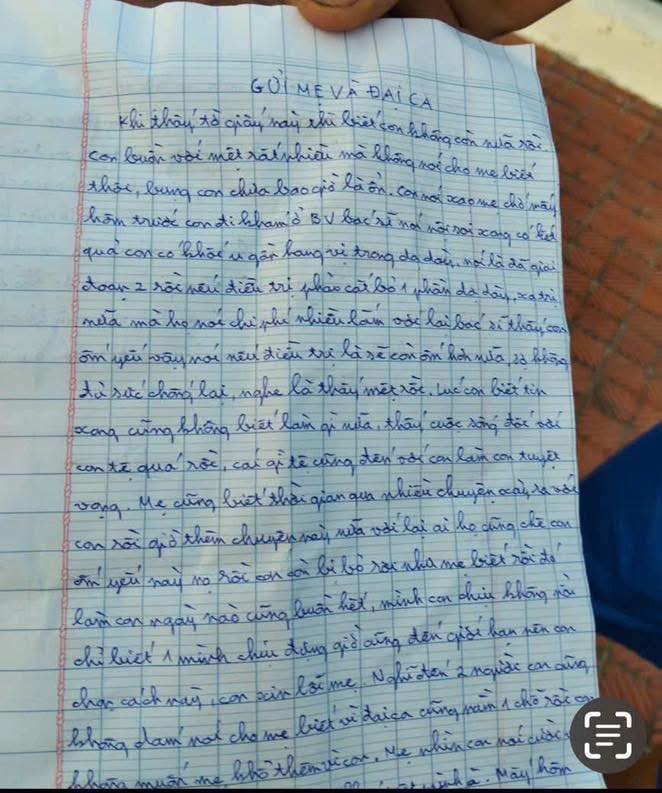 GỞI MẸ VÀ ĐẠI CA
Khi thấy tờ giấy này thì biết con không còn nữa rồi
con buồn với mệt rất nhiều mà không nói cho mẹ biết
thôi, bụng con chưa bao giờ là ổn. Con nói xạo mẹ chớ mấy
hôm trước con đi khám ở BV bác sĩ nói nội soi xong có kết
quả con có khối u gần hang vị trong dạ dày, nói là đã giai
đoạn 2 rồi nếu điều trị phải cắt bỏ 1 phần dạ dày, xạ trị
nữa mà họ nói chi phí nhiều lắm với lại bác sĩ thấy con
ốm yếu vậy nói nếu điều trị là sẽ còn ốm hơn nữa, sợ không
đủ sức chống lại, nghe là thấy mệt rồi. Lúc con biết tin
xong cũng không biết làm gì nữa, thấy cuộc sống đối với
con tệ quá rồi, cái gì tệ cũng đến với con làm con tuyệt
vọng. Mẹ cũng biết thời gian qua nhiều chuyện xảy ra với
con rồi giờ thêm chuyện này nữa với lại ai họ cũng chê con
ốm yếu này nọ rồi con còn bị bỏ rơi nữa mẹ biết rồi đó
làm con ngày nào cũng buồn hết, mình con chịu không nổi
chỉ biết 1 mình chịu đựng giờ cũng đến giới hạn nên con
chọn cách này, con xin lỗi mẹ. Nghĩ đến 2 người con cũng
không dám nói cho mẹ biết vì đại ca cũng nằm 1 chỗ rồi con
không muốn mẹ khổ thêm vì con. Mẹ nhìn con nói cười
Mấy hôm